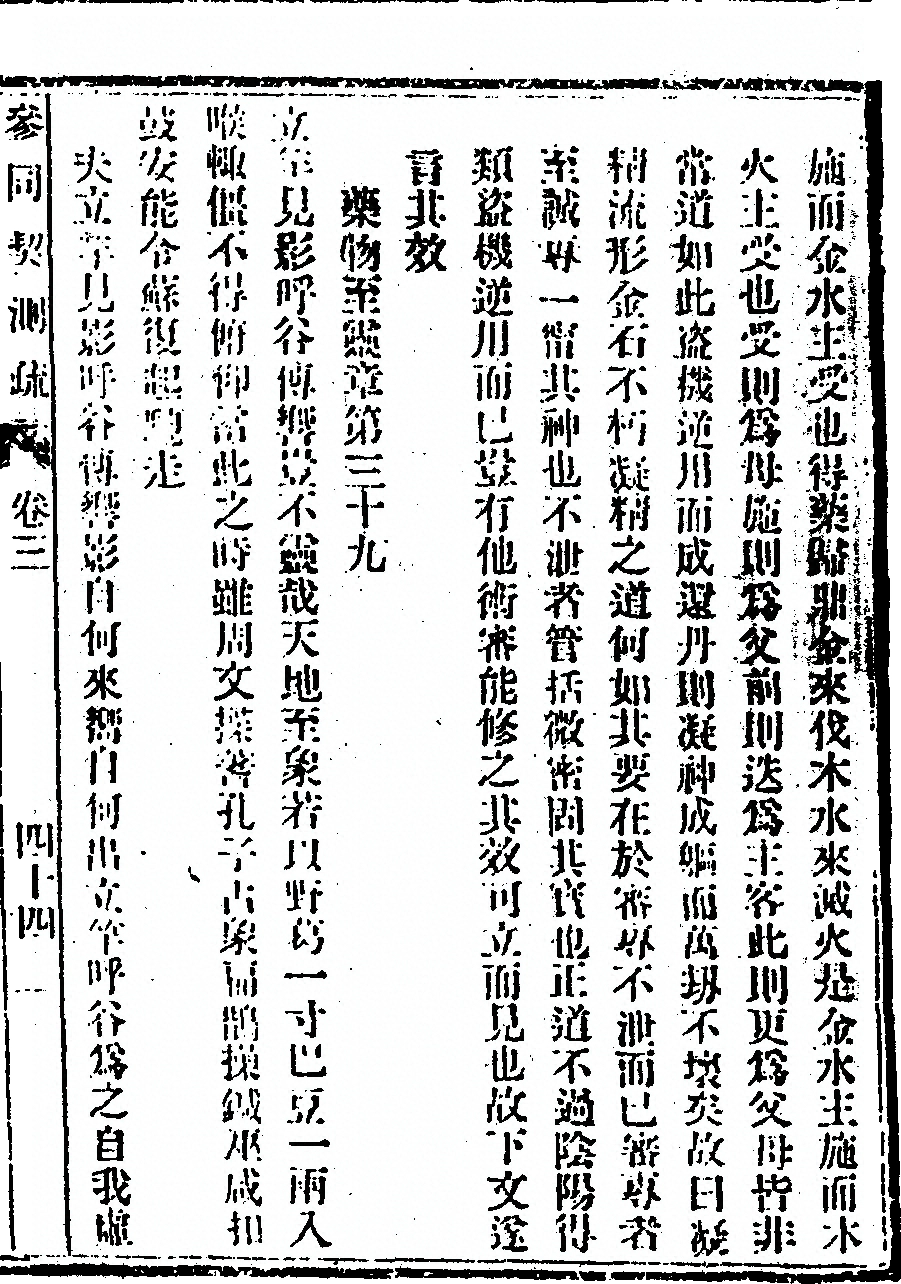 施而金水主受也得藥歸鼎金來伐木水來滅火是金水主施而木
火主受也受則爲母施則爲父前則迭爲主客此則更爲父母皆非
常道如此盜機逆用而成還丹則凝神成軀而萬劫不壞矣故曰凝
精流形金石不朽凝精之道何如其要在於審專不泄而已審專者
至誠專一密其神也不泄者管括微密閉其寶也正道不過陰陽得
類盜機逆用而已豈有他術審能修之其效可立而見也故下文遂
言其效
藥物至靈章第三十九
立竿見影呼谷傳響豈不靈哉天地至象若以野葛一寸巴豆一兩入
喉輒僵不得俯仰當此之時雖周文揲蓍孔子占象扁鵲操鍼巫咸扣
鼓安能令蘇復起馳走
夫立竿見影呼谷傳響影自何來響自何出立竿呼谷爲之自我雖
參同契測疏
卷三
四十四